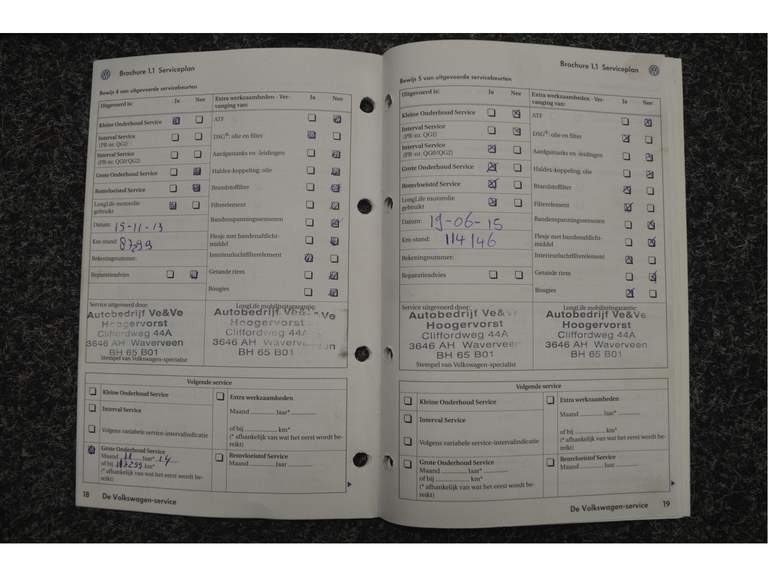 Brochure 1.1 Serviceplan
Bewijs 4 van uitgevoerde servicebeurten
Uitgevoerd is: Ja Nee
Kleine Onderhoud Service
Interval Service
(PR-nr. QG1)
Interval Service
(PR-nr. QG0/QG2)
Grote Onderhoud Service
Remvloeistof Service
LongLife motorolie
gebruikt
Datum: 15-11-13
Km-stand:
Rekeningnummer:
Reparatieadvies
Extra werkzaamheden - Ver-
vanging van: Ja Nee
ATF
DSG®: olie en filter
Aandrijfassen en -leidingen
Haldex-koppeling: olie
Brandstoffilter
Filterelement
Bandenspanningssensoren
Flesje met bandenafdicht-
middel
Interieurluchtfilterelement
Getande riem
Bougies
Service uitgevoerd door:
Autobedrijf Ve&Ve
Hoogervorst
Cliffordweg 44A
3646 AH Waverveen
BH 65 B01
Stempel van Volkswagen-specialist
LongLife mobiliteitsgarantie:
Autobedrijf Ve&Ve
Hoogervorst
Cliffordweg 44A
3646 AH Waverveen
BH 65 B01
Volgende service
Kleine Onderhoud Service
Interval Service
Volgens variabele service-intervalindicatie
Grote Onderhoud Service
Maand 11 Jaar* 14
of bij km*
(* afhankelijk van wat het eerst wordt be-
reikt)
Extra werkzaamheden
Maand Jaar*
of bij km*
(* afhankelijk van wat het eerst wordt be-
reikt)
Remvloeistof Service
Maand Jaar
18 De Volkswagen-service
Brochure 1.1 Serviceplan
Bewijs 5 van uitgevoerde servicebeurten
Uitgevoerd is: Ja Nee
Kleine Onderhoud Service
Interval Service
(PR-nr. QG1)
Interval Service
(PR-nr. QG0/QG2)
Grote Onderhoud Service
Remvloeistof Service
LongLife motorolie
gebruikt
Datum: 19-06-15
Km-stand: 114146
Rekeningnummer:
Reparatieadvies
Extra werkzaamheden - Ver-
vanging van: Ja Nee
ATF
DSG®: olie en filter
Haldex-koppeling: olie
Brandstoffilter
Filterelement
Bandenspanningssensoren
Flesje met bandenafdicht-
middel
Interieurluchtfilterelement
Getande riem
Bougies
Service uitgevoerd door:
Autobedrijf Ve&Ve
Hoogervorst
Cliffordweg 44A
3646 AH Waverveen
BH 65 B01
Stempel van Volkswagen-specialist
LongLife mobiliteitsgarantie:
Autobedrijf Ve&Ve
Hoogervorst
Cliffordweg 44A
3646 AH Waverveen
BH 65 B01
Volgende service
Kleine Onderhoud Service
Interval Service
Volgens variabele service-intervalindicatie
Grote Onderhoud Service
Maand Jaar*
of bij km*
(* afhankelijk van wat het eerst wordt be-
reikt)
Extra werkzaamheden
Maand Jaar*
of bij km*
(* afhankelijk van wat het eerst wordt be-
reikt)
Remvloeistof Service
Maand Jaar
De Volkswagen-service 19